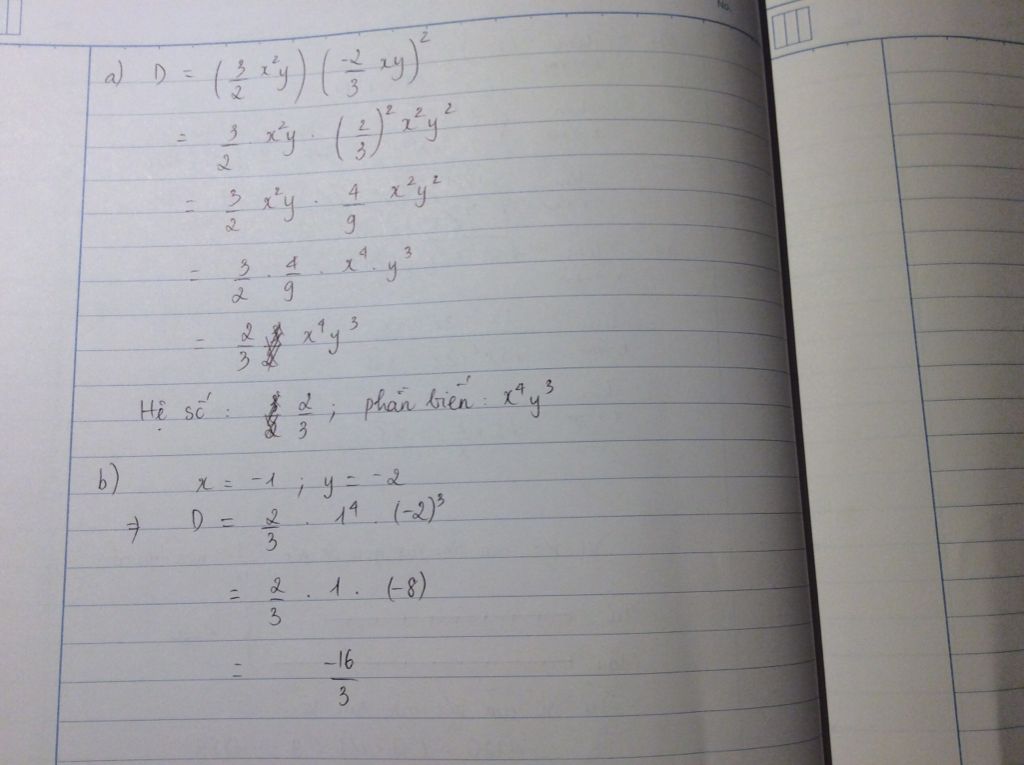 No.
a) D = (3/2 x²y) (-2/3 xy)²
= 3/2 x²y . (2/3)² x²y²
= 3/2 x²y . 4/9 x²y²
= 3/2 . 4/9 . x⁴ . y³
= 2/3 x⁴y³
Hệ số : 2/3 ; phần biến : x⁴y³
b) x = -1 ; y = -2
=> D = 2/3 . 1⁴ . (-2)³
= 2/3 . 1 . (-8)
= -16/3